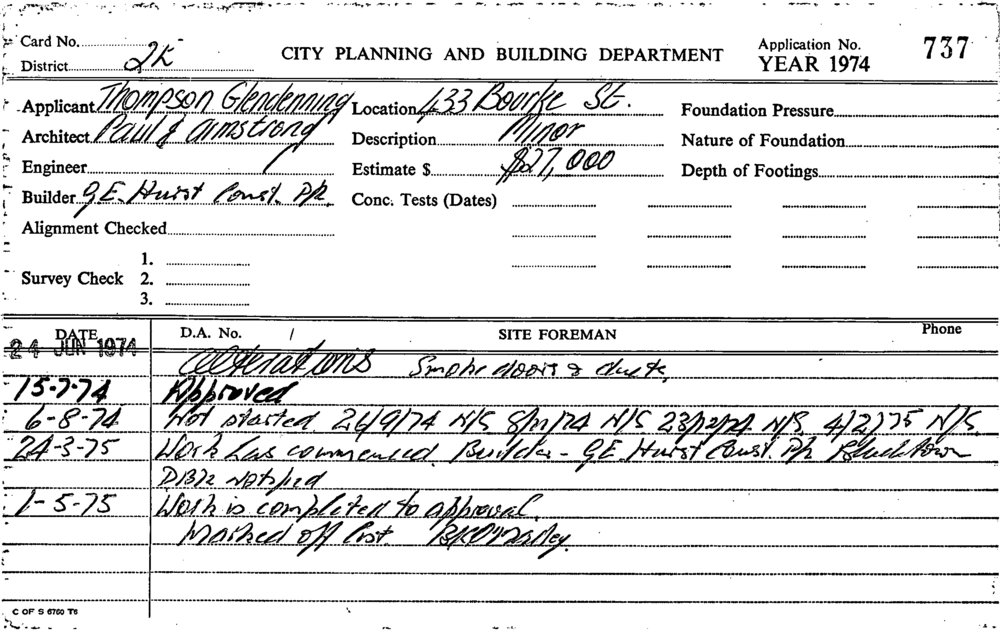 Card No.
District 2K
CITY PLANNING AND BUILDING DEPARTMENT
Application No. 737
YEAR 1974
Applicant Thompson Glendenning
Location 433 Bourke St.
Foundation Pressure
Architect Paul J Armstrong
Description Minor
Nature of Foundation
Engineer /
Estimate $ $27,000
Depth of Footings
Builder G.E. Hurst Const. P/L
Conc. Tests (Dates)
Alignment Checked
Survey Check 1.
2.
3.
DATE D.A. No. / SITE FOREMAN Phone
24 JUN 1974 Alterations Smoke doors & ducts
15-7-74 Approved
6-8-74 Not started 26/9/74 N/S 8/11/74 N/S 23/12/74 N/S. 4/2/75 N/S.
24-3-75 Work has commenced. Builder - G.E. Hurst Const. P/L Blacktown
notified
1-5-75 Work is completed to approval.
Marked off list.
C OF S 6760 T6